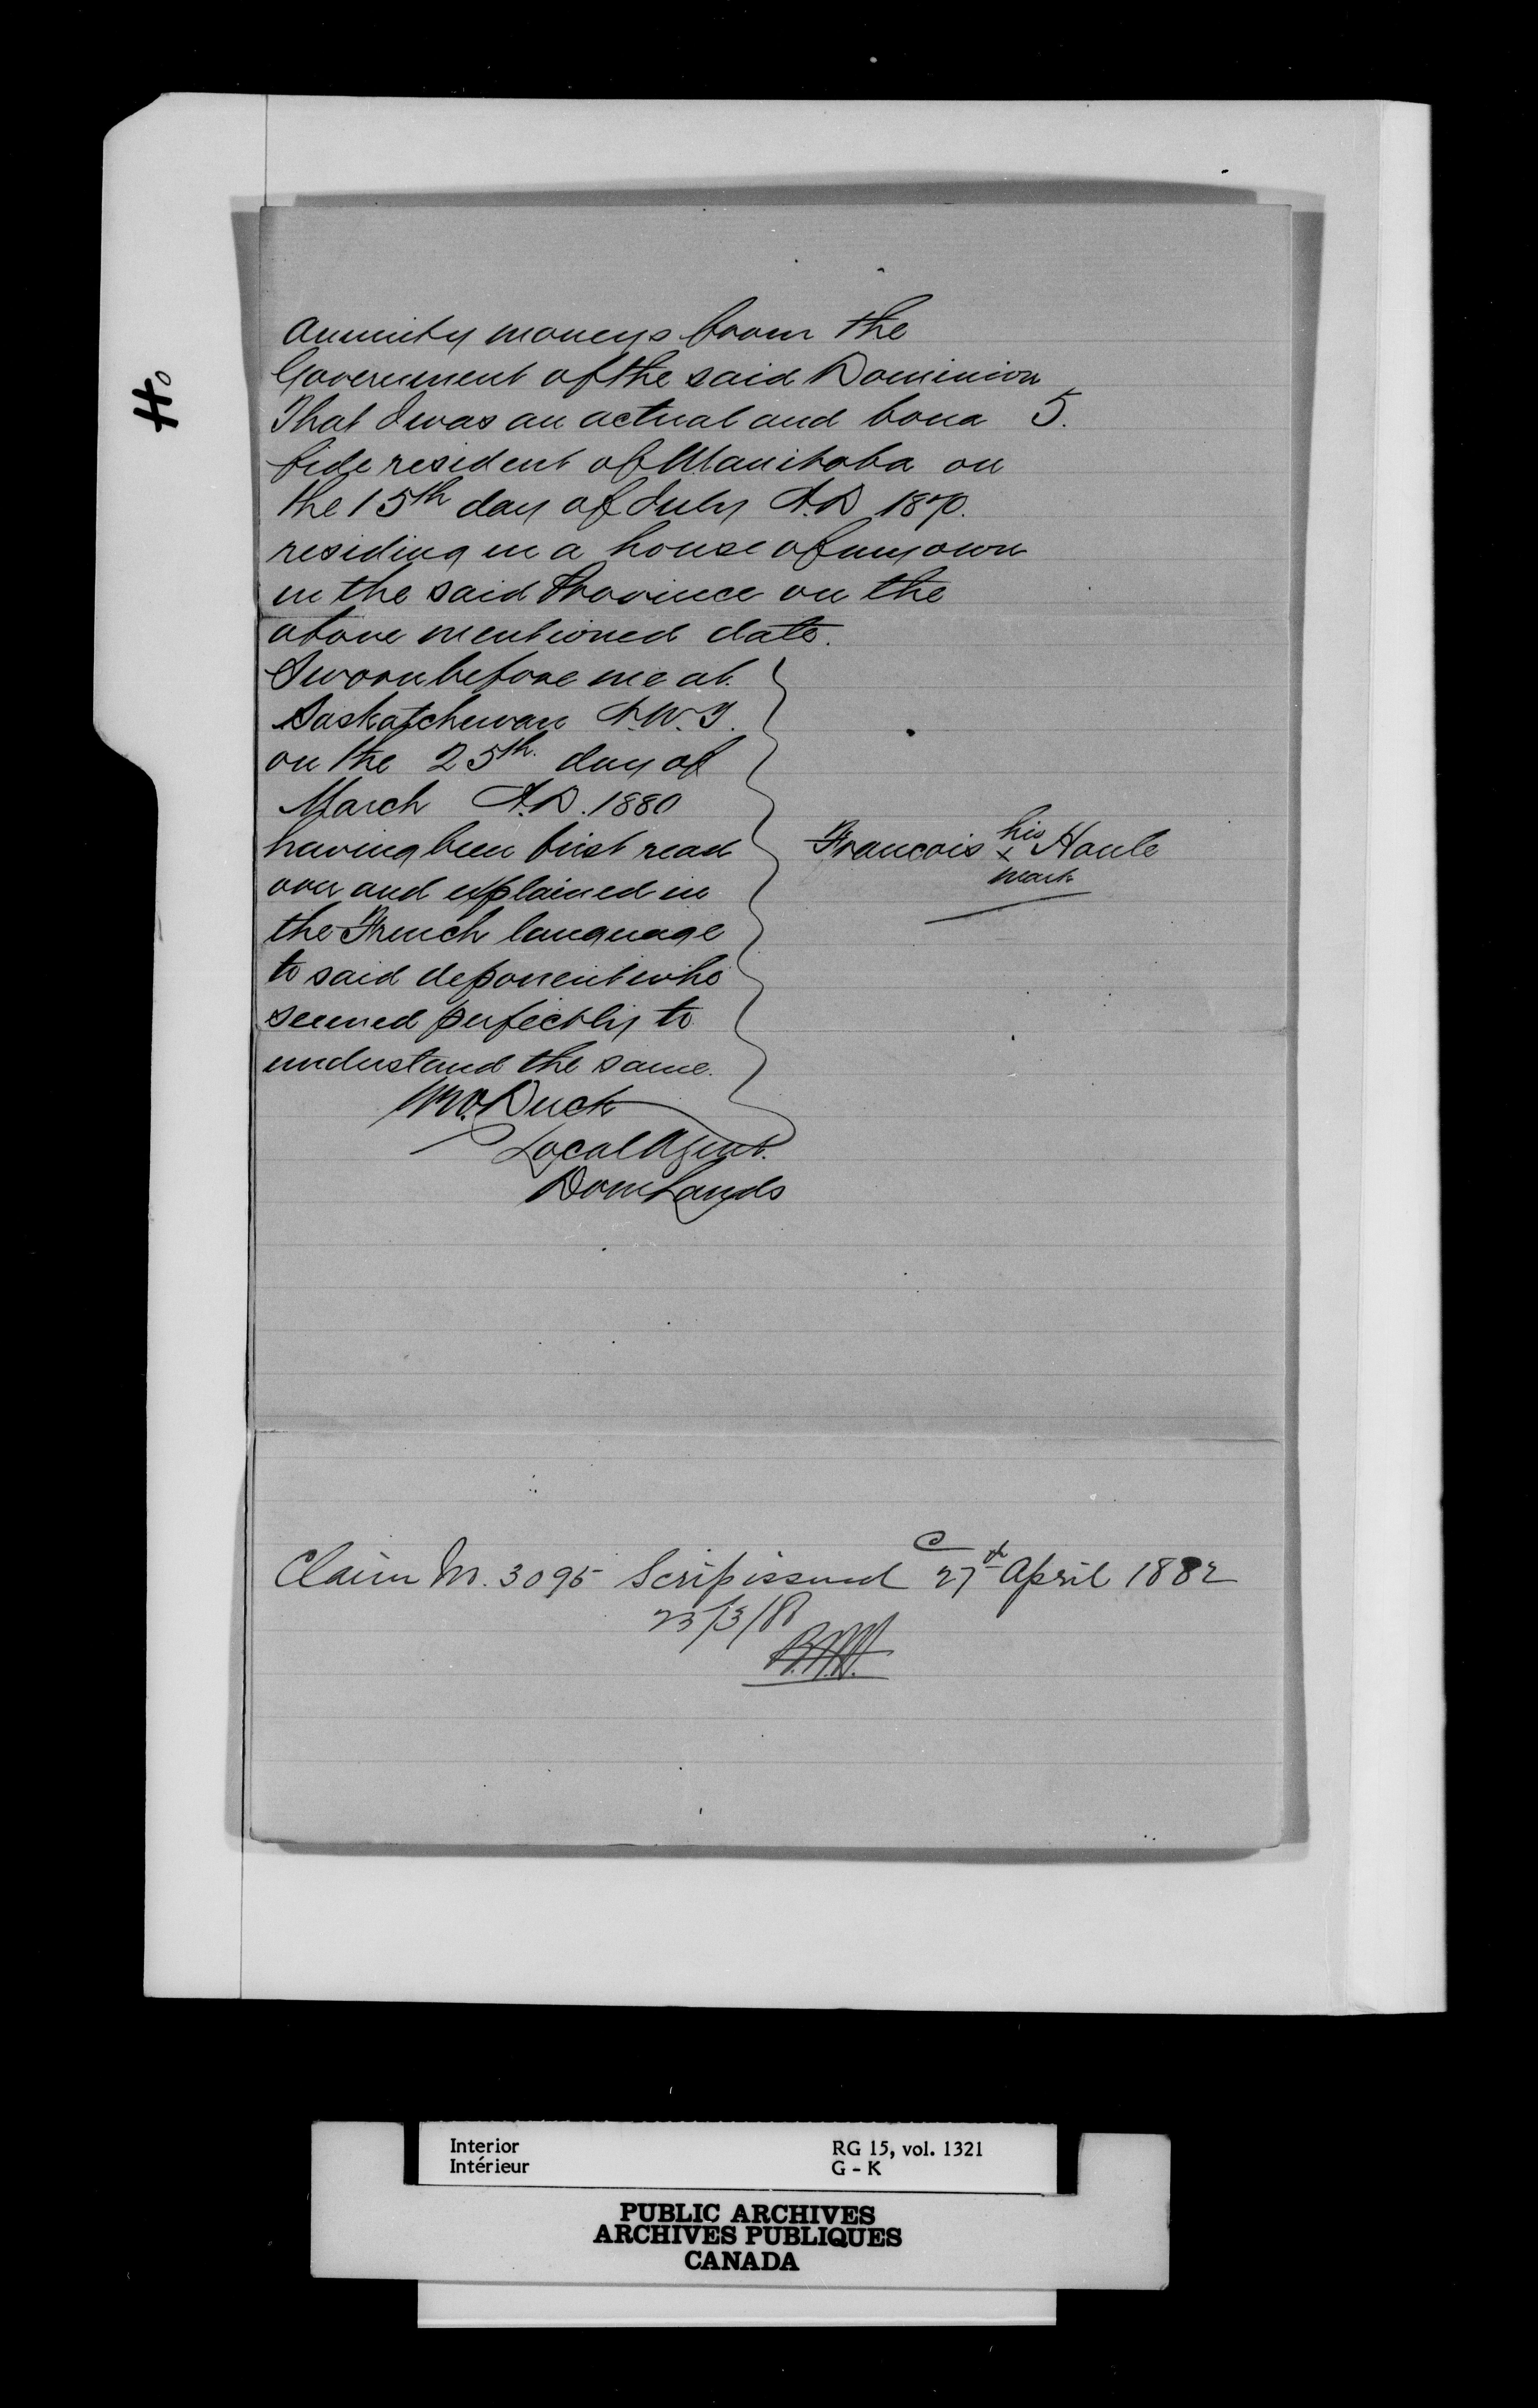 Ho
annuity moneys from the
Government of the said Dominion
That I was an actual and bona 5.
fide resident of Manitoba on
the 15th day of July A.D 1870.
residing in a house of my own
in the said Province on the
above mentioned date.
Sworn before me at
Saskatchewan N.W.T.
on the 25th day of
March A.D. 1880
having been first read
over and explained in
the French language
to said deponent who
seemed perfectly to
understand the same.
Francois his x mark Houle
Duck
Local Agent.
Dom Lands
Claim No. 3095 Scrip issued 27th April 1882
Interior
Intérieur
RG 15, vol. 1321
G - K
PUBLIC ARCHIVES
ARCHIVES PUBLIQUES
CANADA